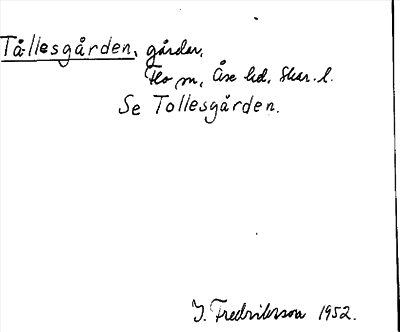 Tållesgården, gårdar,
Flo sn, Åse hd. Skar. l.
Se Tollesgården.
I. Fredriksson 1952.